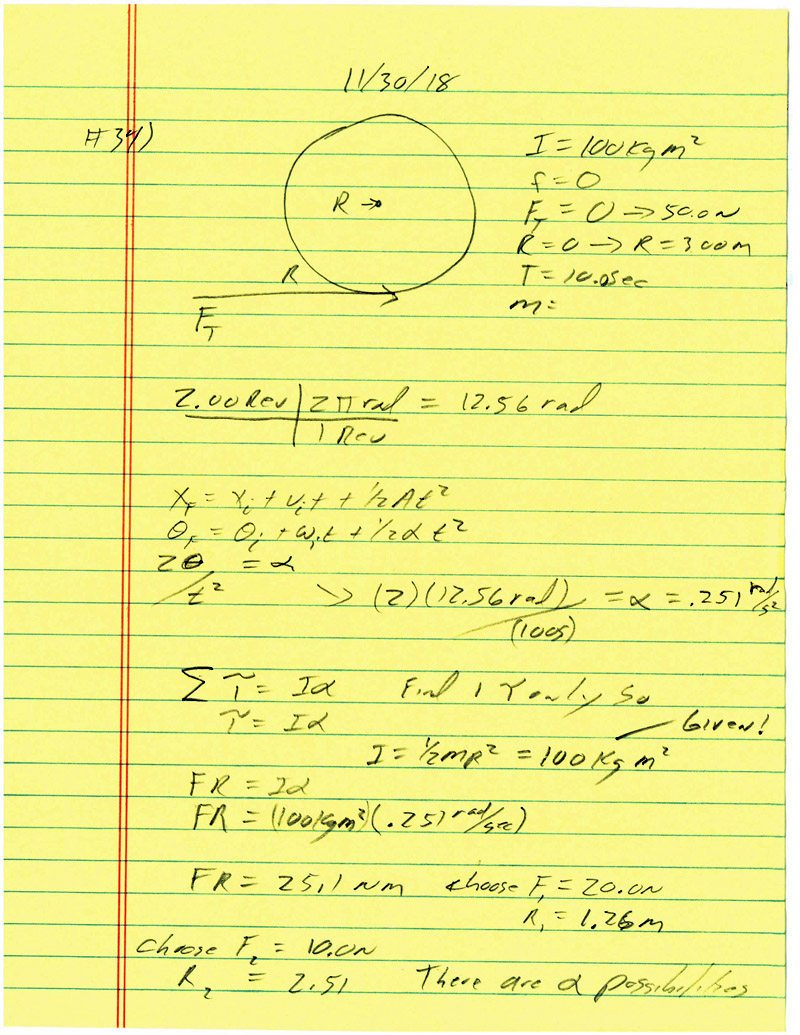 11/30/18
#34)
I = 100 kg m²
f = 0
F_T = 0 → 50.0 N
R = 0 → R = 3.00 m
T = 10.0 sec
m =
R →
R
F_T
2.00 Rev | 2π rad = 12.56 rad
1 Rev
x_f = x_i + v_i t + 1/2 A t²
θ_f = θ_i + ω_i t + 1/2 α t²
2θ/t² = α
>> (2)(12.56 rad)/(100s) = α = .251 rad/s²
Σ τ = Iα Find 1 τ only so
τ = Iα
Given!
I = 1/2 mR² = 100 kg m²
FR = Iα
FR = (100 kg m²)(.251 rad/sec)
FR = 25.1 Nm choose F₁ = 20.0 N
R₁ = 1.26 m
choose F₂ = 10.0 N
R₂ = 2.51 There are α possibilities